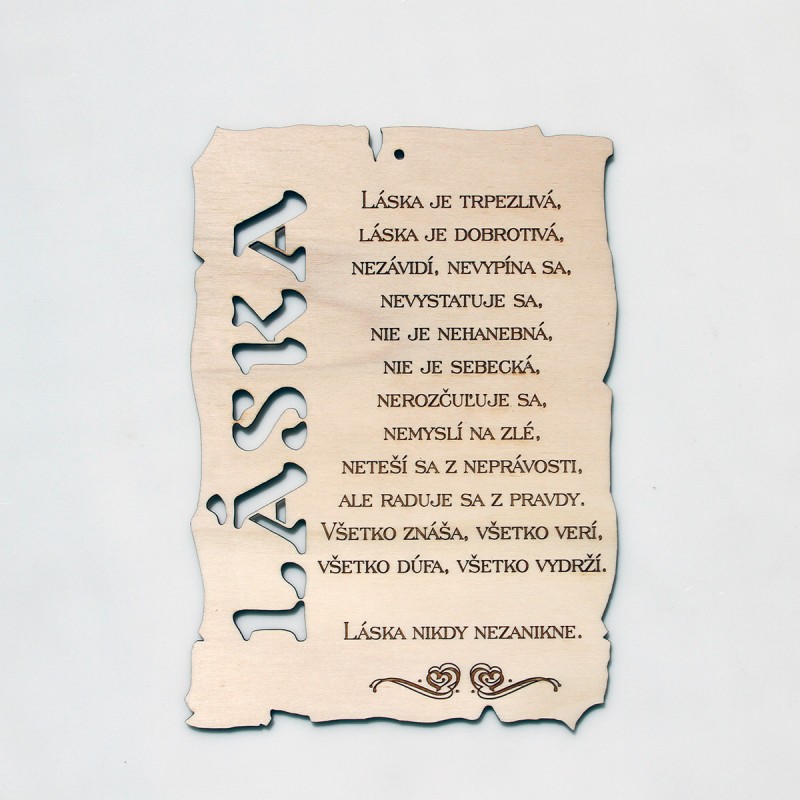 LÁSKA
LÁSKA JE TRPEZLIVÁ,
LÁSKA JE DOBROTIVÁ,
NEZÁVIDÍ, NEVYPÍNA SA,
NEVYSTATUJE SA,
NIE JE NEHANEBNÁ,
NIE JE SEBECKÁ,
NEROZČUĽUJE SA,
NEMYSLÍ NA ZLÉ,
NETEŠÍ SA Z NEPRÁVOSTI,
ALE RADUJE SA Z PRAVDY.
VŠETKO ZNÁŠA, VŠETKO VERÍ,
VŠETKO DÚFA, VŠETKO VYDRŽÍ.
LÁSKA NIKDY NEZANIKNE.